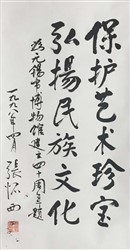 保护艺术珍宝
弘揚民族文化
为无锡市博物馆建立四十周年题
一九九八年十月 張懷西